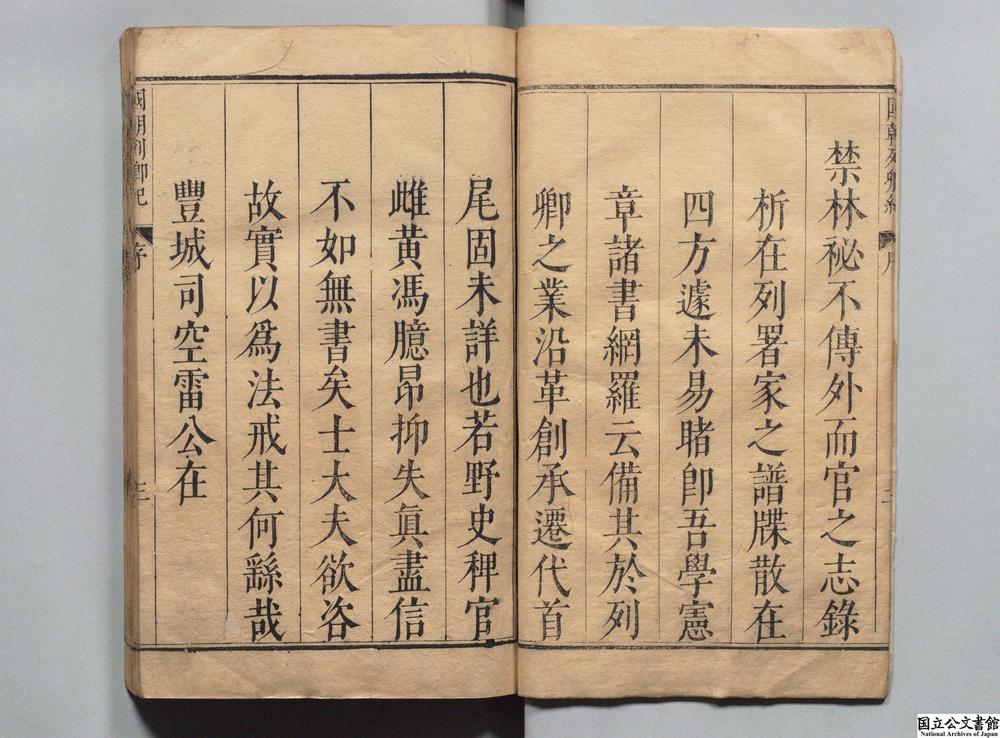 國朝列卿紀
序
禁林祕不傳外而官之志錄
析在列署家之譜牒散在
四方遽未易睹卽吾學憲
章諸書網羅云備其於列
卿之業沿革創承遷代首
尾固未詳也若野史稗官
雌黃馮臆昂抑失眞盡信
不如無書矣士大夫欲咨
故實以爲法戒其何繇哉
豐城司空雷公在
國朝列卿紀
序
三
国立公文書館
National Archives of Japan